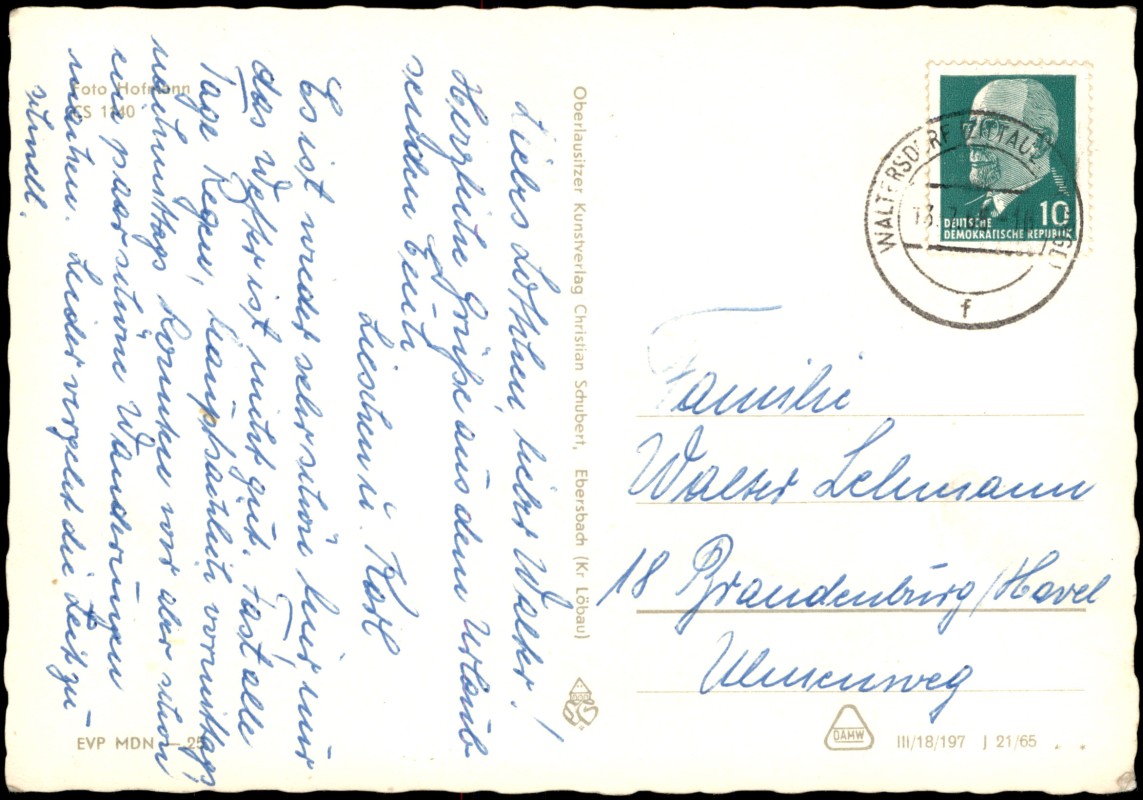 Foto Hofmann
CS 1140
Liebes Lottchen, lieber Walter!
Herzliche Grüße aus dem Urlaub
senden Euch
Lieschen u. Karl
Es ist wieder sehr schön hier, nur
das Wetter ist nicht gut. Fast alle
Tage Regen, hauptsächlich vormittags,
nachmittags konnten wir aber schon
ein paar schöne Wanderungen
machen. Leider vergeht die Zeit zu
schnell.
EVP MDN —.25
Oberlausitzer Kunstverlag Christian Schubert, Ebersbach (Kr Löbau)
10
DEUTSCHE
DEMOKRATISCHE REPUBLIK
WALTERSDORF ZITTAU
f
Familie
Walter Lehmann
18 Brandenburg/Havel
Ulmenweg
DAMW
III/18/197 J 21/65